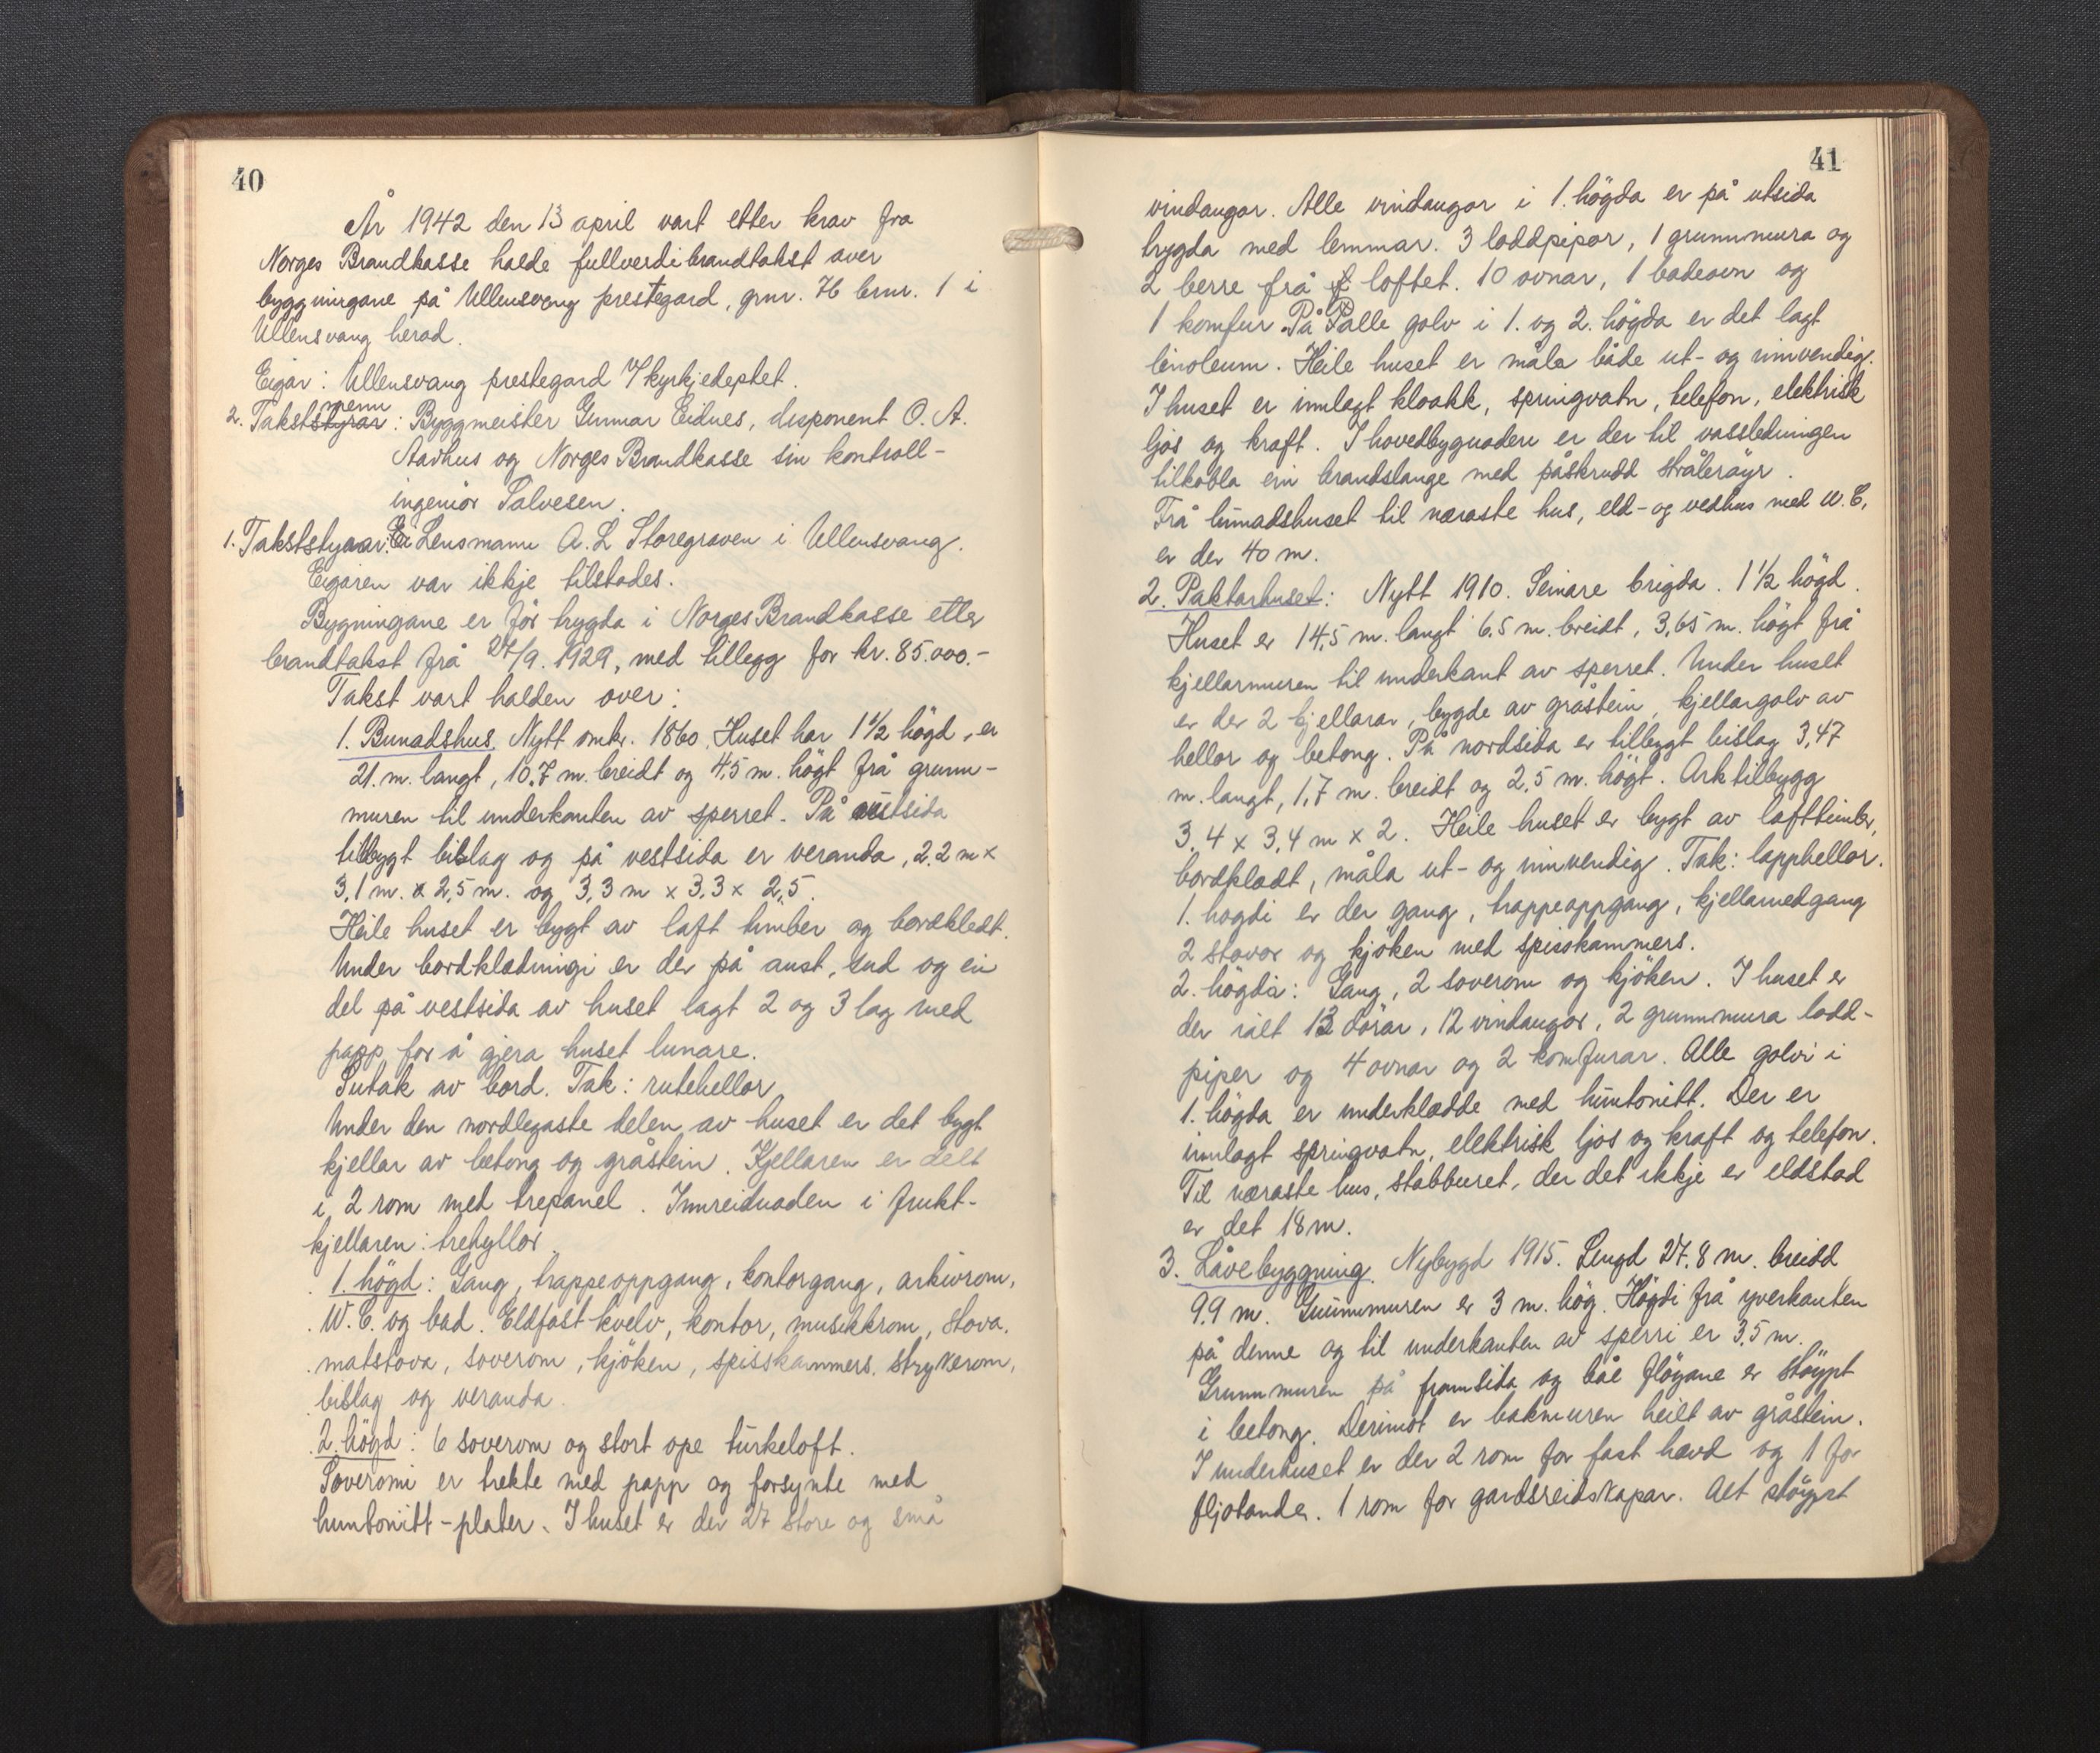 40
År 1942 den 13 april vart etter krav fra
Norges Brandkasse halde fullverdibrandtakst over
byggningane på Ullensvang prestegard, gnr. 76 brnr. 1 i
Ullensvang herad.
Eigar: Ullensvang prestegard v/kyrkjedeptet.
2. Takststyrar menn: Byggmeister Gunnar Eidnes, disponent O. A.
Aarhus og Norges Brandkasse sin kontroll-
ingeniör Salvesen.
1. Takststyrar: Lensmann A. L Storegraven i Ullensvang.
Eigaren var ikkje tilstades.
Bygningane er för trygda i Norges Brandkasse etter
brandtakst frå 24/9. 1929, med tillegg for kr. 85.000.-
Takst vart halden over:
1. Bunadshus. Nytt omkr. 1860. Huset har 1 1/2 högd, er
21. m. langt, 10,7 m. breidt og 4,5 m. högt frå grunn-
muren til underkanten av sperret. På austsida
tilbygt bislag og på vestsida er veranda, 2,2 m x
3,1 m. x 2,5 m. og 3,3 m x 3,3 x 2,5.
Heile huset er bygt av laft timber og bordkledt.
Under bordklædningi er der på aust, sud og ein
del på vestsida av huset lagt 2 og 3 lag med
papp for å gjera huset lunare.
Sutak av bord. Tak: rutehellor
Under den nordlegaste delen av huset er det bygt
kjellar av betong og gråstein. Kjellaren er delt
i 2 rom med trepanel. Innreidnaden i frukt-
kjellaren: trehyllor.
1. högd: Gang, trappeoppgang, kontorgang, arkivrom,
W.C. og bad. Eldfast kvelv, kontor, musikkrom, stova,
matstova, soverom, kjöken, spisskammers, strykerom,
bislag og veranda.
2. högd: 6 soverom og stort ope turkeloft.
Soveromi er trekte med papp og forsynte med
huntonitt-plater. I huset er der 27 store og små
41
vindaugor. Alle vindaugor i 1. högda er på utsida
trygda med lemmar. 3 loddpipor, 1 grunnmura og
2 berre frå loftet. 10 ovnar, 1 badeovn og
1 komfur. På alle golv i 1. og 2. högda er det lagt
linoleum. Heile huset er måla både ut- og innvendig.
I huset er innlagt kloakk, springvatn, telefon, elektrisk
ljos og kraft. I hovedbygnaden er der til vassledningen
tilkobla ein brandslange med påskrudd strålerøyr.
Frå bunadshuset til næraste hus, eld- og vedhus med W.C,
er der 40 m.
2. Paktarhuset: Nytt 1910. Seinare brigda. 1 1/2 högd.
Huset er 14,5 m. langt 6,5 m. breidt, 3,65 m. högt frå
kjellarmuren til underkant av sperret. Under huset
er der 2 kjellarar, bygde av gråstein, kjellargolv av
hellor og betong. På nordsida er tilbygt bislag 3,47
m. langt, 1,7 m. breidt og 2,5 m. högt. Ark tilbygg
3,4 x 3,4 m x 2. Heile huset er bygt av lafttimbr,
bordklædt, måla ut- og innvendig. Tak: lapphellor.
1. hogdi er der gang, trappeoppgang, kjellarnedgang
2 stovor og kjöken med spisskammers.
2. högdi: Gang, 2 soverom og kjöken. I huset er
der ialt 13 dörar, 12 vindaugor, 2 grunnmura lodd-
piper og 4 ovnar og 2 komfurar. Alle golvi i
1. högda er underklædde med huntonitt. Der er
innlagt springvatn, elektrisk ljos og kraft og telefon.
Til næraste hus, stabburet, der det ikkje er eldstad
er det 18 m.
3. Låvebyggning. Nybygd 1915. Lengd 27.8 m. breidd
9,9 m. Grunnmuren er 3 m. hög. Högdi frå yverkanten
på denne og til underkanten av sperri er 3,5 m.
Grunnmuren på framsida og båe flöyane er stöypt
i betong. Derimot er bakmuren heilt av gråstein.
I underhuset er der 2 rom for fast hævd og 1 for
fljotande. 1 rom for gardsreidskapar. Alt stöypt